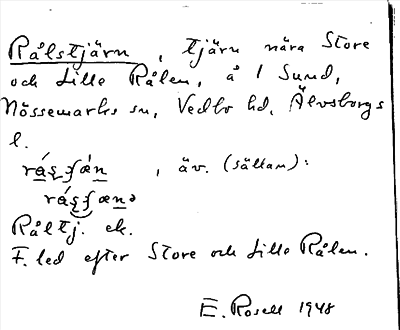 Rålstjärn, tjärn nära Store
och Lille Rålen, å / Sund,
Nössemarks sn, Vedbo hd, Älvsborgs
l.
, äv. (sällan):
Råltj. ek.
F. led efter Store och Lille Rålen.
E. Rosell 1948